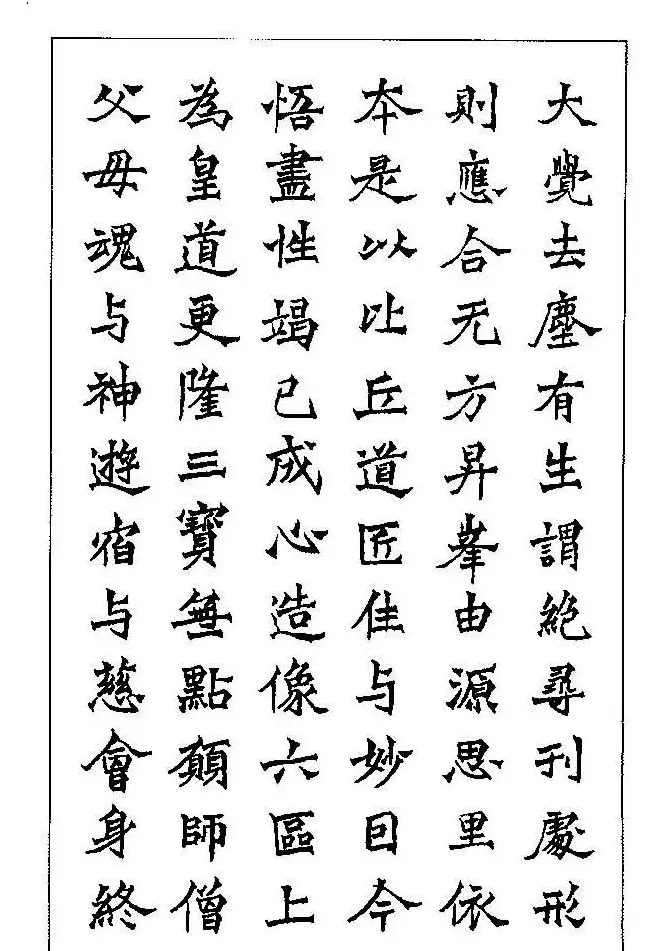 大覺去塵有生謂絕尋刊處形
則應合无方昇峯由源思里依
夲是以比丘道匠佳与妙囙今
悟盡性竭已成心造像六區上
為皇道更隆三寶無點願師僧
父母魂与神遊宿与慈會身終